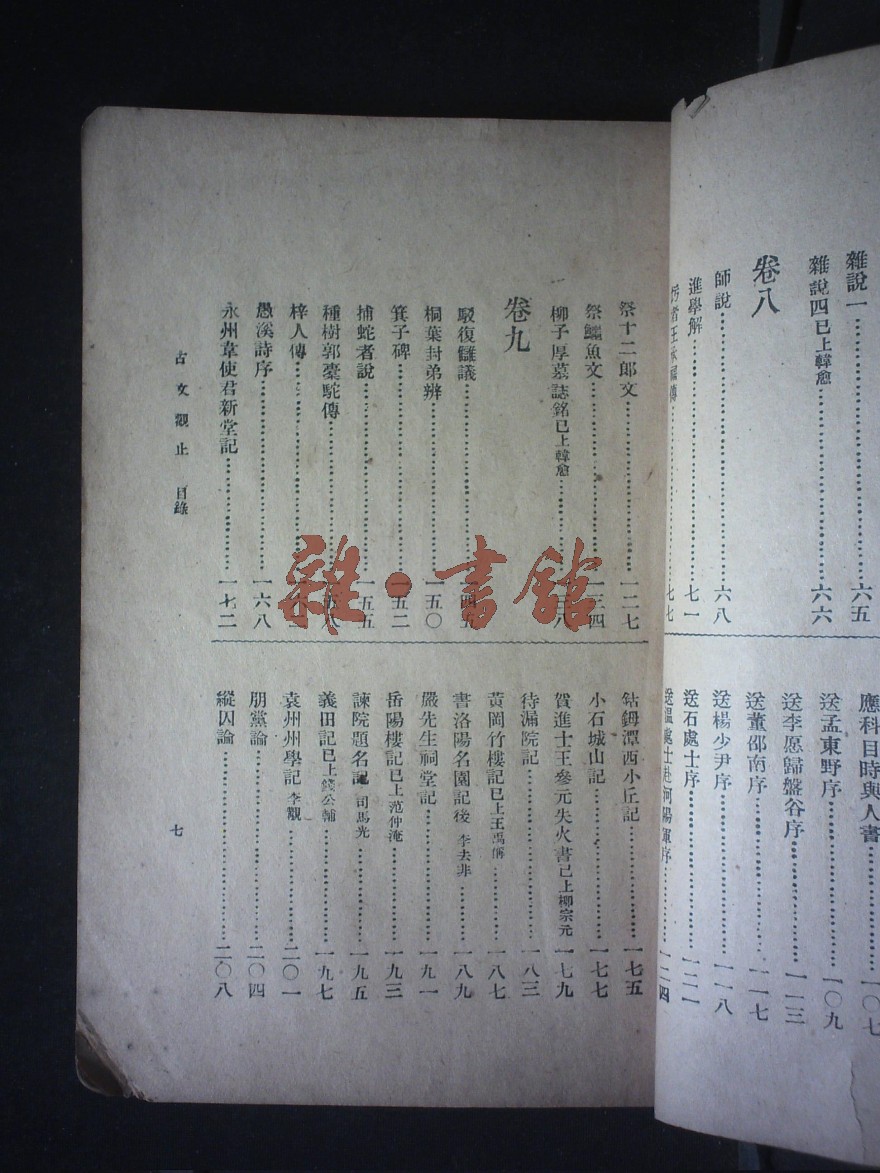 雜說一……六五
雜說四已上韓愈……六六
卷八
師說……六八
進學解……七一
圬者王承福傳……七七
應科目時與人書……一〇七
送孟東野序……一〇九
送李愿歸盤谷序……一一三
送董邵南序……一一七
送楊少尹序……一一八
送石處士序……一二一
送溫處士赴河陽軍序……一二四
祭十二郎文……一二七
祭鱷魚文……一三四
柳子厚墓誌銘已上韓愈……
卷九
駁復讎議……四五
桐葉封弟辨……一五〇
箕子碑……一五二
捕蛇者說……一五五
種樹郭橐駝傳……
梓人傳……
愚溪詩序……一六八
永州韋使君新堂記……一七二
鈷鉧潭西小丘記……一七五
小石城山記……一七七
賀進士王參元失火書已上柳宗元……一七九
待漏院記……一八三
黃岡竹樓記已上王禹偁……一八七
書洛陽名園記後 李去非……一八九
嚴先生祠堂記……一九一
岳陽樓記已上范仲淹……一九三
諫院題名記 司馬光……一九五
義田記已上錢公輔……一九七
袁州州學記 李覯……二〇一
朋黨論……二〇四
縱囚論……二〇八
古文觀止 目錄
七
雜·書館